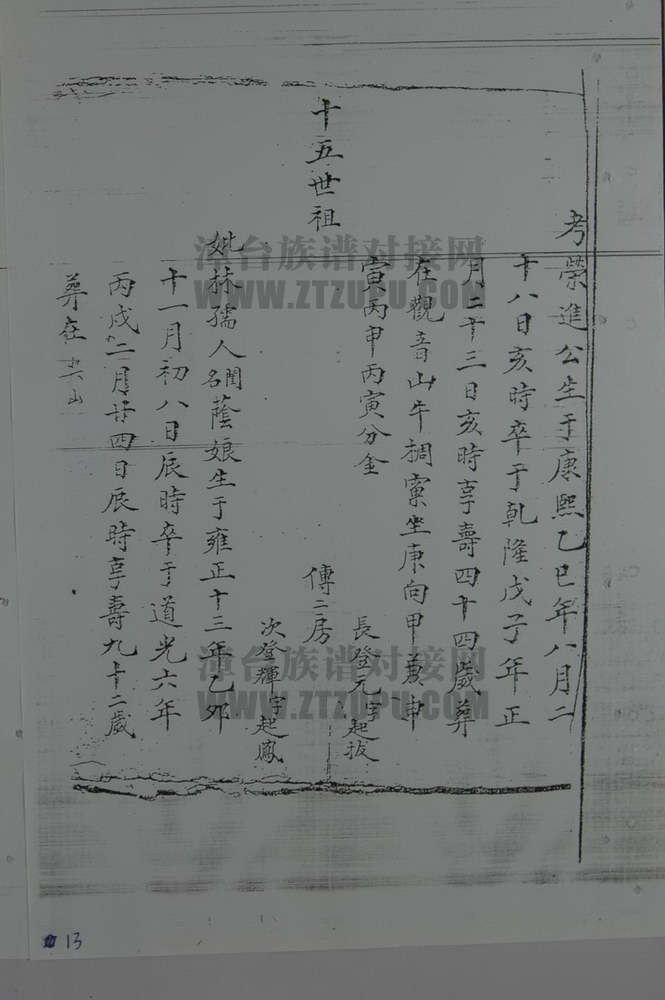 考榮進公生于康熙乙巳年八月二
十八日亥時卒于乾隆戊子年正
月二十三日亥時享壽四十四歲葬
在觀音山午捆窠坐庚向甲兼申
寅丙申丙寅分金
十五世祖
長登元字起拔
傳二房
次登輝字起鳳
妣林孺人名閏蔭娘生于雍正十三年乙夘
十一月初八日辰時卒于道光六年
丙戍二月廿四日辰時享壽九十二歲
葬在山
漳台族谱对接网
WWW.ZTZUPU.COM
漳台族谱对接网
WWW.ZTZUPU.COM
13